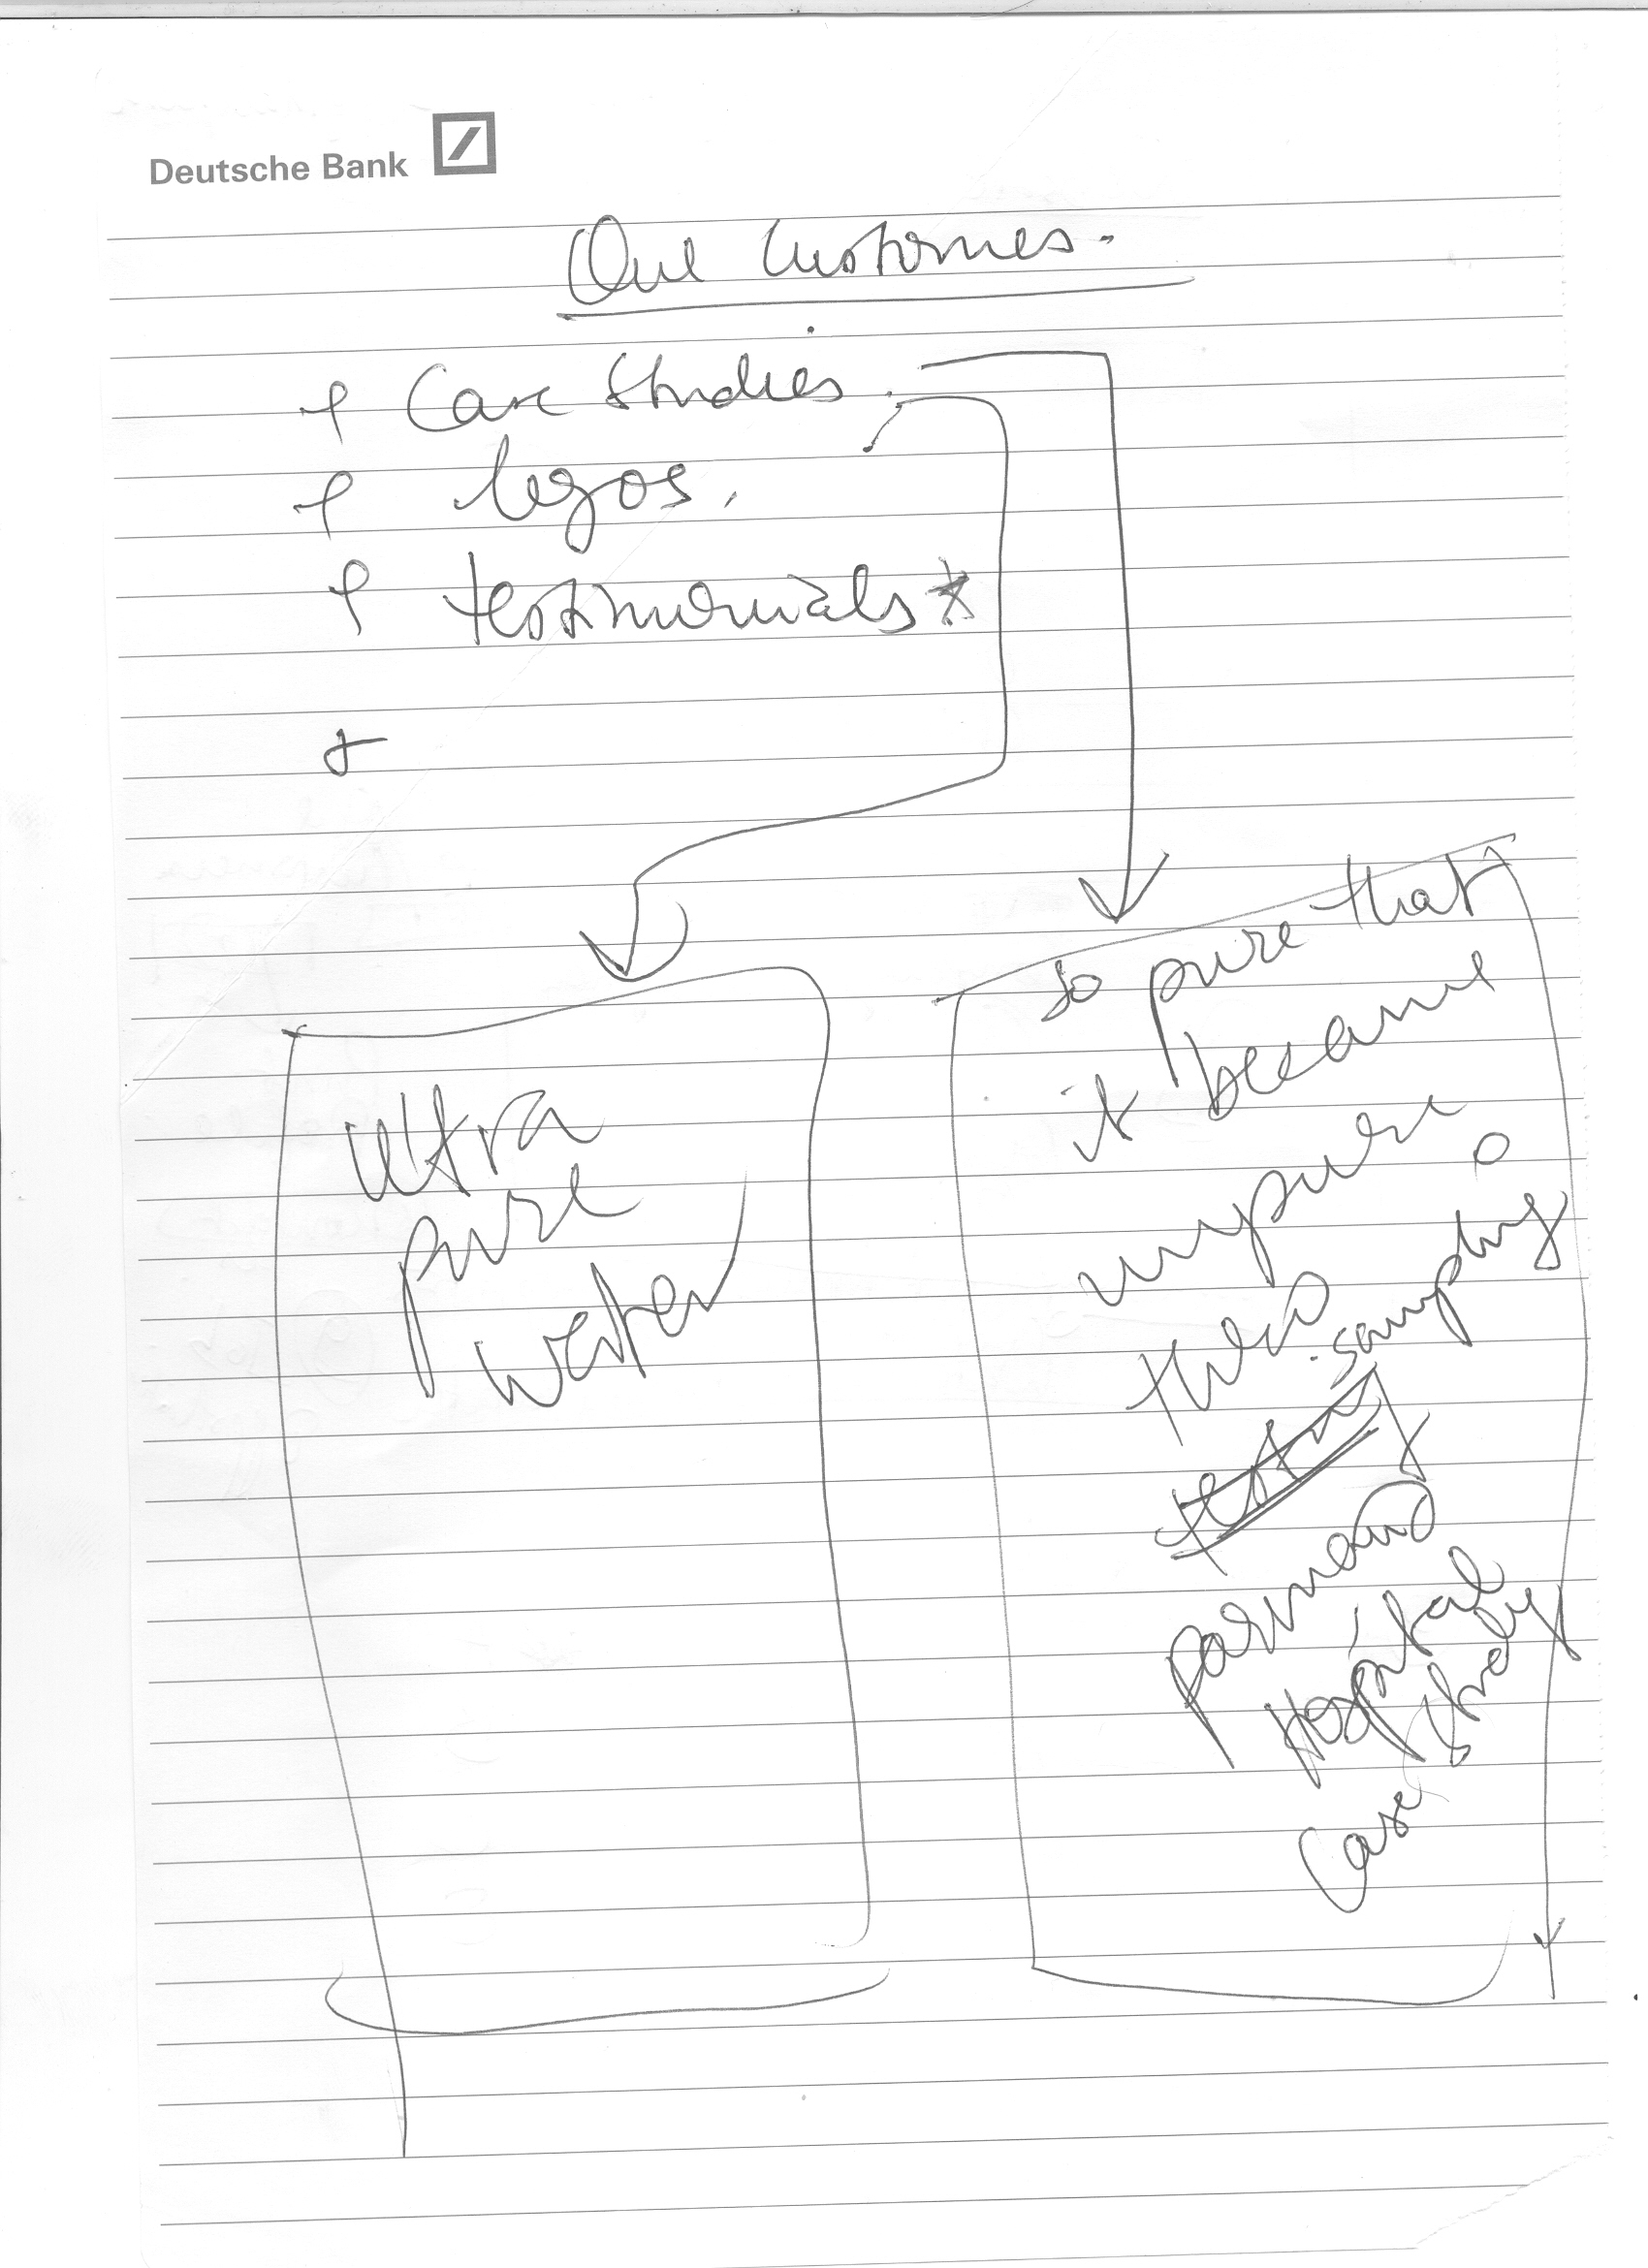 Deutsche Bank
Our Customes.
+ Case Studies.
+ logos.
+ testimonials*
+
ultra
pure
water
so pure that
it became
impure
sampling
testing
parmanand
Hospital
Case study